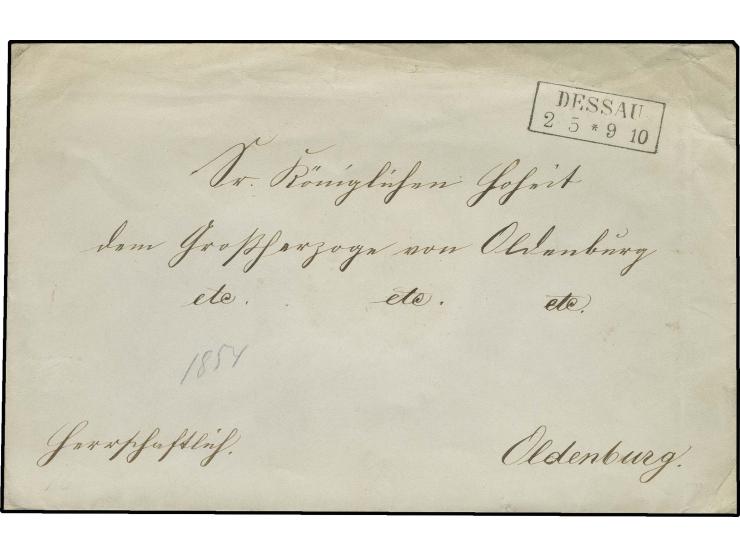 DESSAU
2 5 * 9 10
Sr. Königlichen Hoheit
dem Großherzoge von Oldenburg
etc. etc. etc.
1854
Herrschaftlich.
Oldenburg.